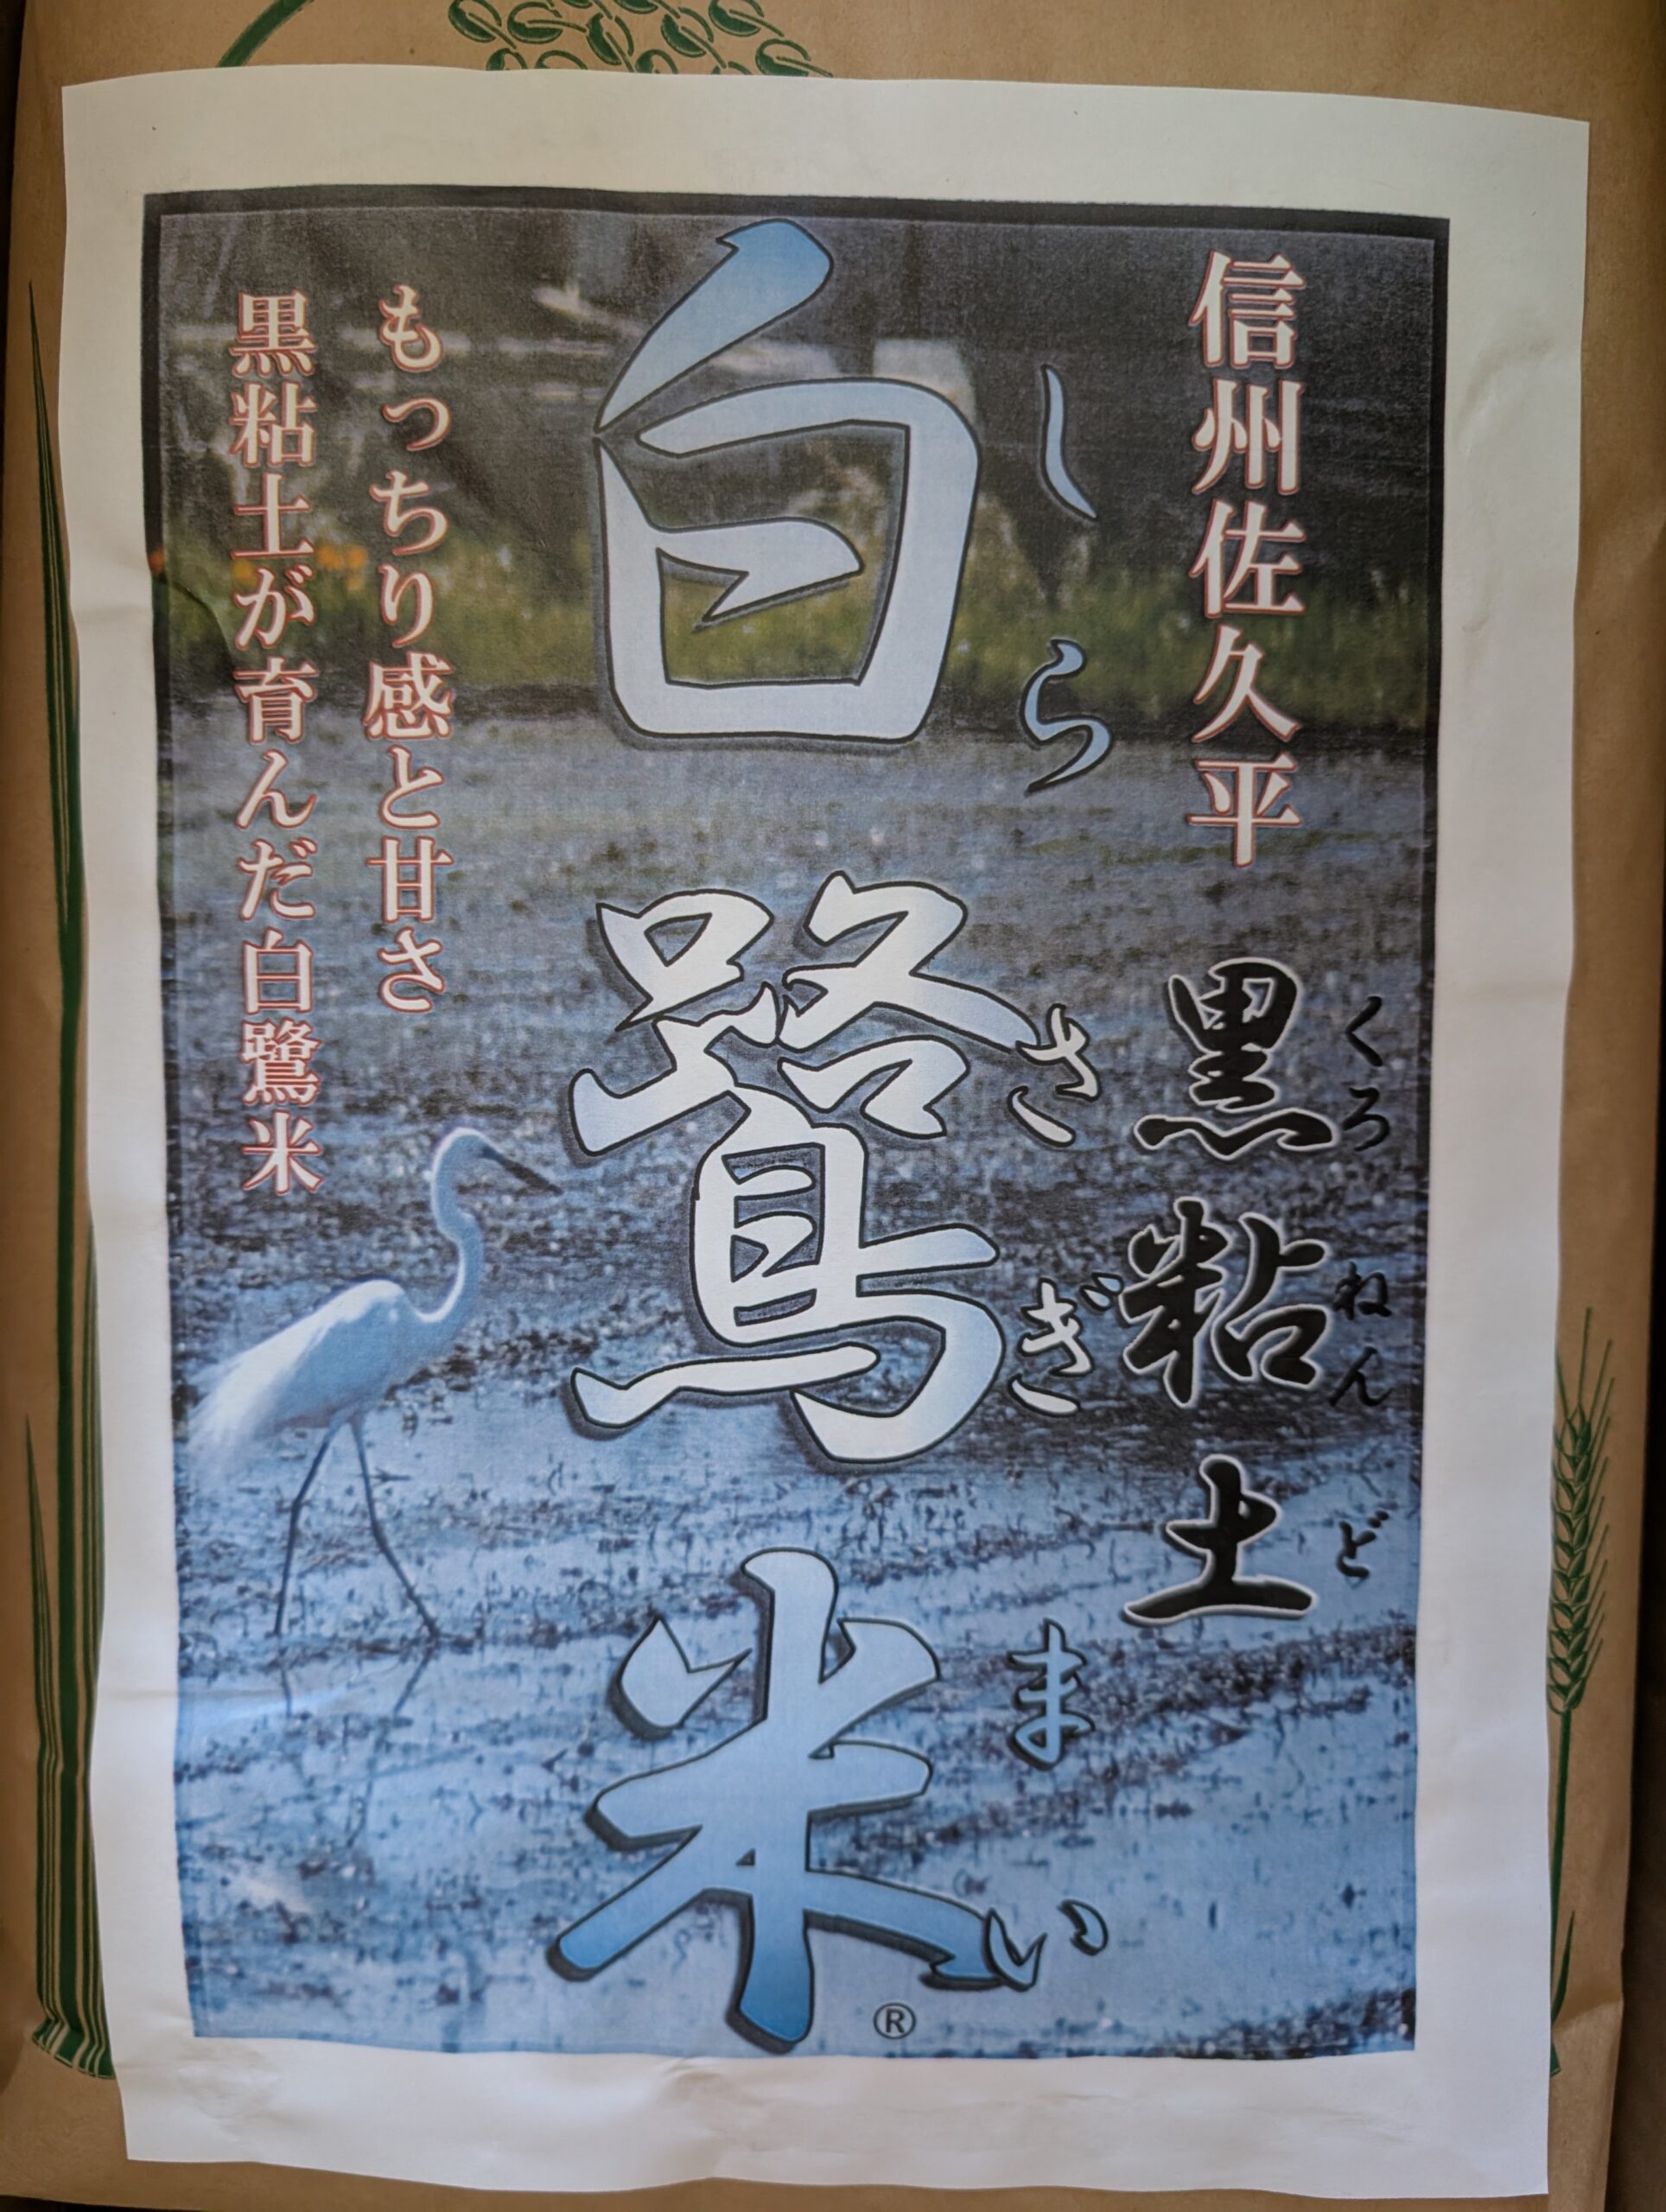 信州佐久平
くろねんど
黒粘土
しらさぎまい
白鷺米
®
もっちり感と甘さ
黒粘土が育んだ白鷺米